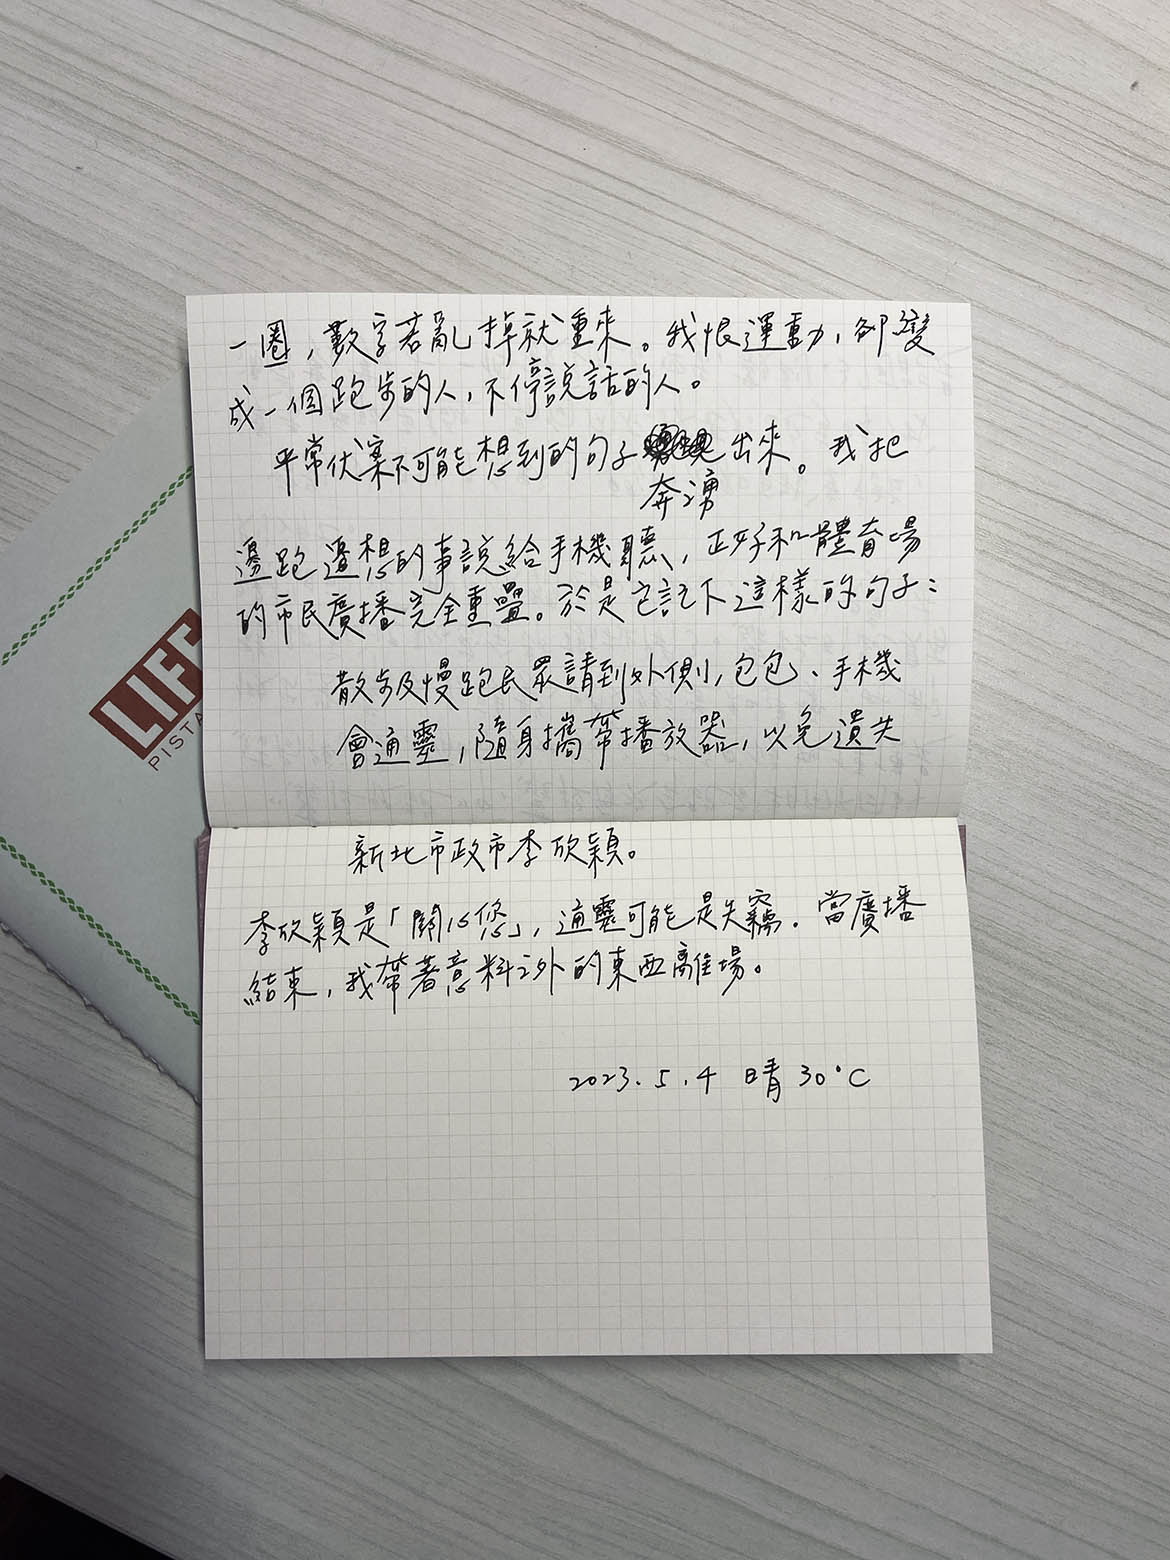 一圈，數字若亂掉就重來。我恨運動，卻變
成一個跑步的人，不停說話的人。
平常伏案不可能想到的句子出來。我把
奔湧
邊跑邊想的事說給手機聽，正好和體育場
的市民廣播完全重疊。於是它記下這樣的句子：
散步及慢跑民眾請到外側，包包、手機
會通靈，隨身攜帶播放器，以免遺失
新北市政市李欣穎。
李欣穎是「關心您」，通靈可能是失竊。當廣播
結束，我帶著意料之外的東西離場。
2023.5.4 晴 30°C
LIFE
PISTA